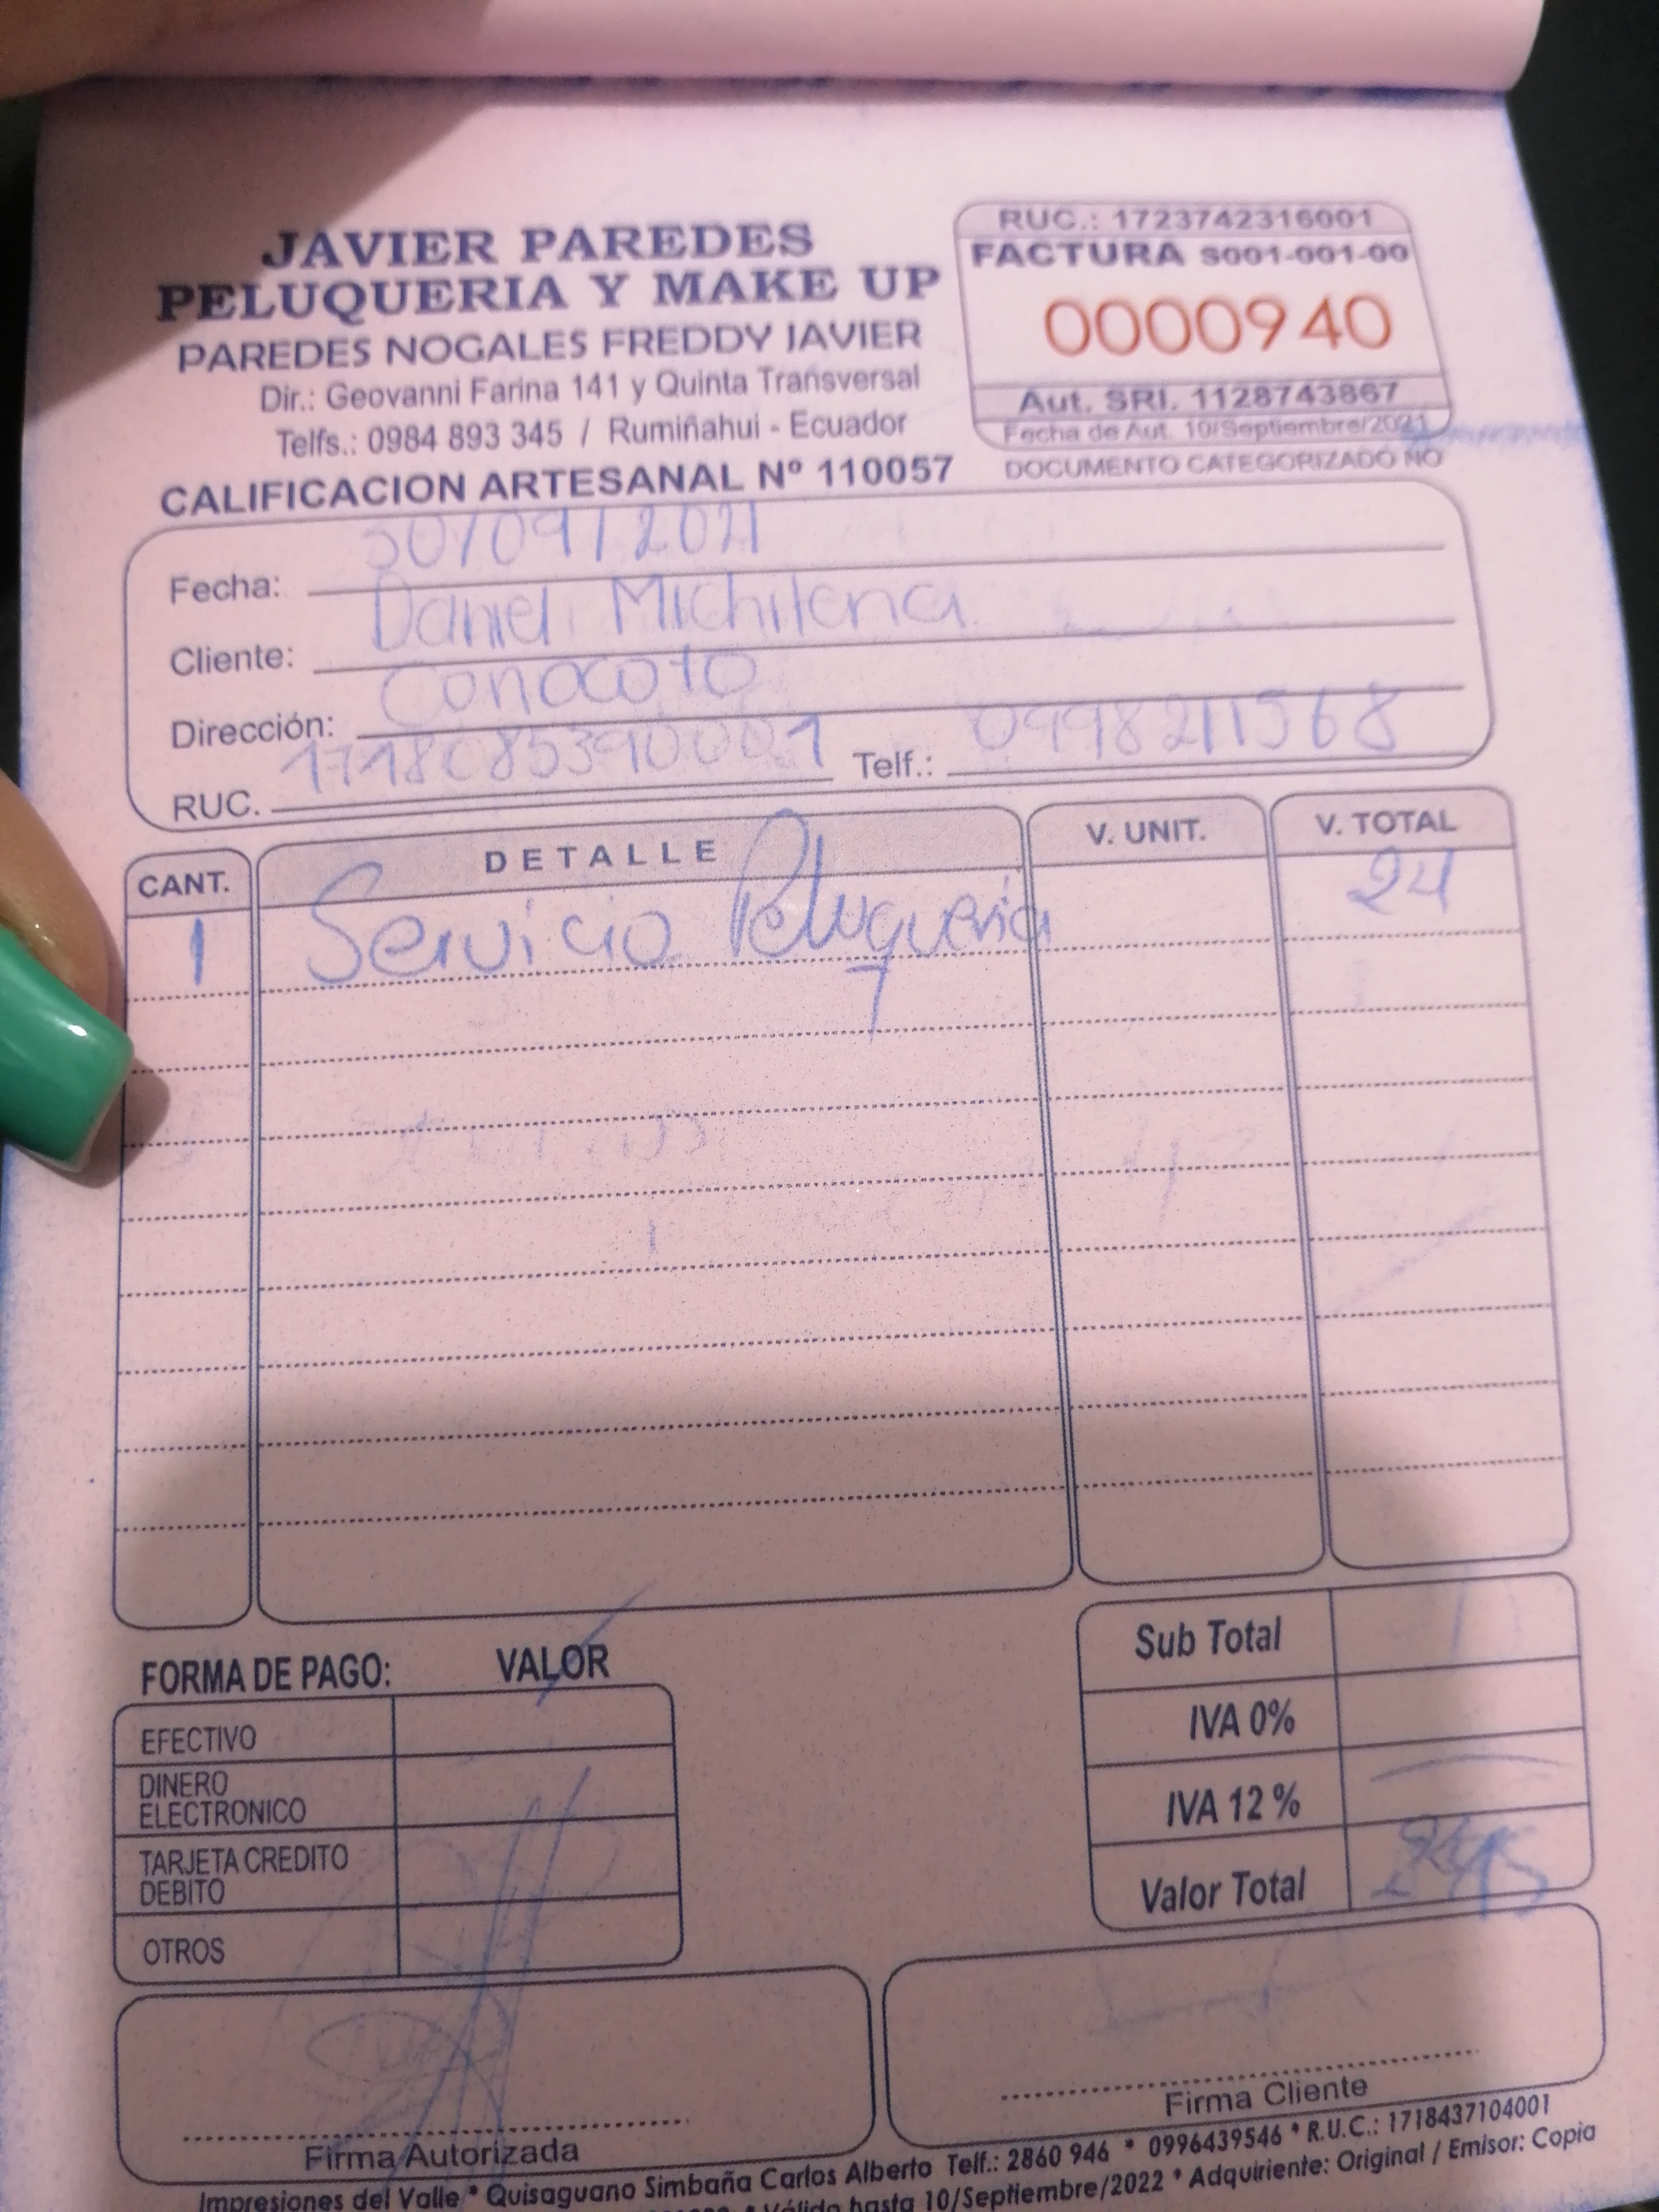 JAVIER PAREDES
PELUQUERIA Y MAKE UP
PAREDES NOGALES FREDDY JAVIER
Dir.: Geovanni Farina 141 y Quinta Transversal
Telfs.: 0984 893 345 / Rumiñahui - Ecuador
CALIFICACION ARTESANAL Nº 110057
RUC.: 1723742316001
FACTURA S001-001-00
0000940
Aut. SRI. 1128743867
Fecha de Aut. 10/Septiembre/2021
DOCUMENTO CATEGORIZADO NO
Fecha: 30/09/2021
Cliente: Daniel Michilena
Dirección: Conocoto
RUC. 1718085390001 Telf.: 0998211568
CANT. DETALLE V. UNIT. V. TOTAL
1 Servicio Peluqueria 24
FORMA DE PAGO: VALOR
EFECTIVO
DINERO
ELECTRONICO
TARJETA CREDITO
DEBITO
OTROS
Sub Total
IVA 0%
IVA 12 %
Valor Total
Firma Autorizada
Firma Cliente
Impresiones del Valle * Quisaguano Simbaña Carlos Alberto Telf.: 2860 946 * 0996439546 * R.U.C.: 1718437104001
* Válido hasta 10/Septiembre/2022 * Adquiriente: Original / Emisor: Copia